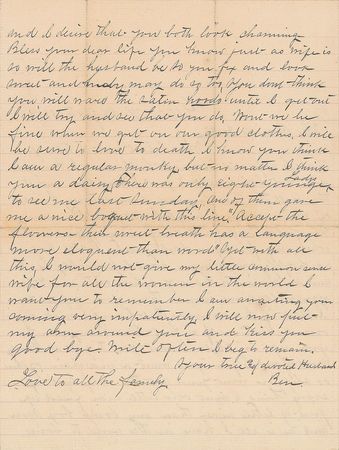 and I desire that you both look charming
Bless your dear life you know just as wife is
so will the husband be so you fix and look
sweet and hubby may do so too. You dont think
you will need the Satin until I get out
I will try and see that you do. Now we be
fine when we get on our good clothes. I will
be sure to live to death. I know you think
I am a regular monkey but no matter I think
you a daisy. There was only eight young ladys
to see me last Sunday, one of them gave
me a nice boquet with this line "Accept the
flowers their sweet breath has a language
more eloquent than words" Yet with all
this, I would not give my little common sense
wife for all the women in the world I
want you to remember I am awaiting your
coming very impatiently, I will now put
my arm around you and kiss you
good bye. Write often I beg to remain.
Your true & devoted Husband
Love to all the family Ben